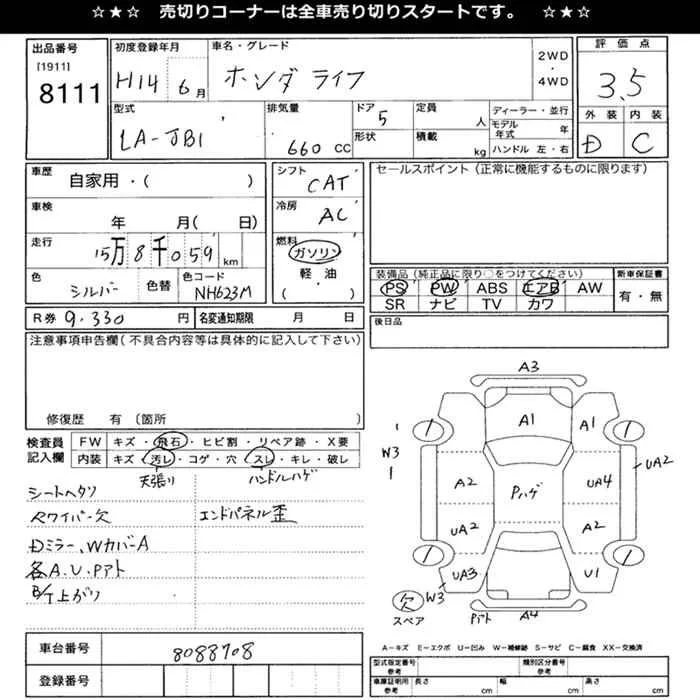 ☆★☆ 売切りコーナーは全車売り切りスタートです。 ☆★☆
出品番号
[1911]
8111
初度登録年月
H14 6月
車名・グレード
ホンダ ライフ
2WD
・
4WD
評価点
3.5
外装 内装
D C
型式
LA-JB1
排気量
660 CC
ドア 5
形状
定員 人
積載 kg
ディーラー・並行
モデル年式 年
ハンドル 左・右
車歴
自家用・( )
車検
年 月( 日)
走行
15万8千059km
色
シルバー
色替
色コード
NH623M
シフト
CAT
冷房
AC
燃料
ガソリン
軽油
( ・ )
セールスポイント (正常に機能するものに限ります)
装備品(純正品に限り○をつけてください)
PS PW ABS エアB AW
SR ナビ TV カワ
新車保証書
有・無
後日品
R券 9,330 円
名変通知期限 月 日
注意事項申告欄(不具合内容等は具体的に記入して下さい)
修復歴 有 (箇所 )
検査員
記入欄
FW キズ・飛石・ヒビ割・リペア跡・X要
内装 キズ・汚レ・コゲ・穴・スレ・キレ・破レ
天張り ハンドルハゲ
シートヘタリ
Rワイパー欠 エンドパネル歪
Dミラー、WカバーA
各A.U.Pアト
B/T上がり
A3
A1
A1
1
1
1
W3
1
A2
Pハゲ
UA4
UA2
UA2
A2
1
1
UA3
W3
U1
欠
スペア
Pアト
A4
A−キズ E−エクボ U−凹み W−補修跡 S−サビ C−腐食 XX−交換済
車台番号
8088708
登録番号
型式指定番号
参考
類別区分番号
参考
車庫証明用
参考
長さ cm
幅 cm
高さ cm